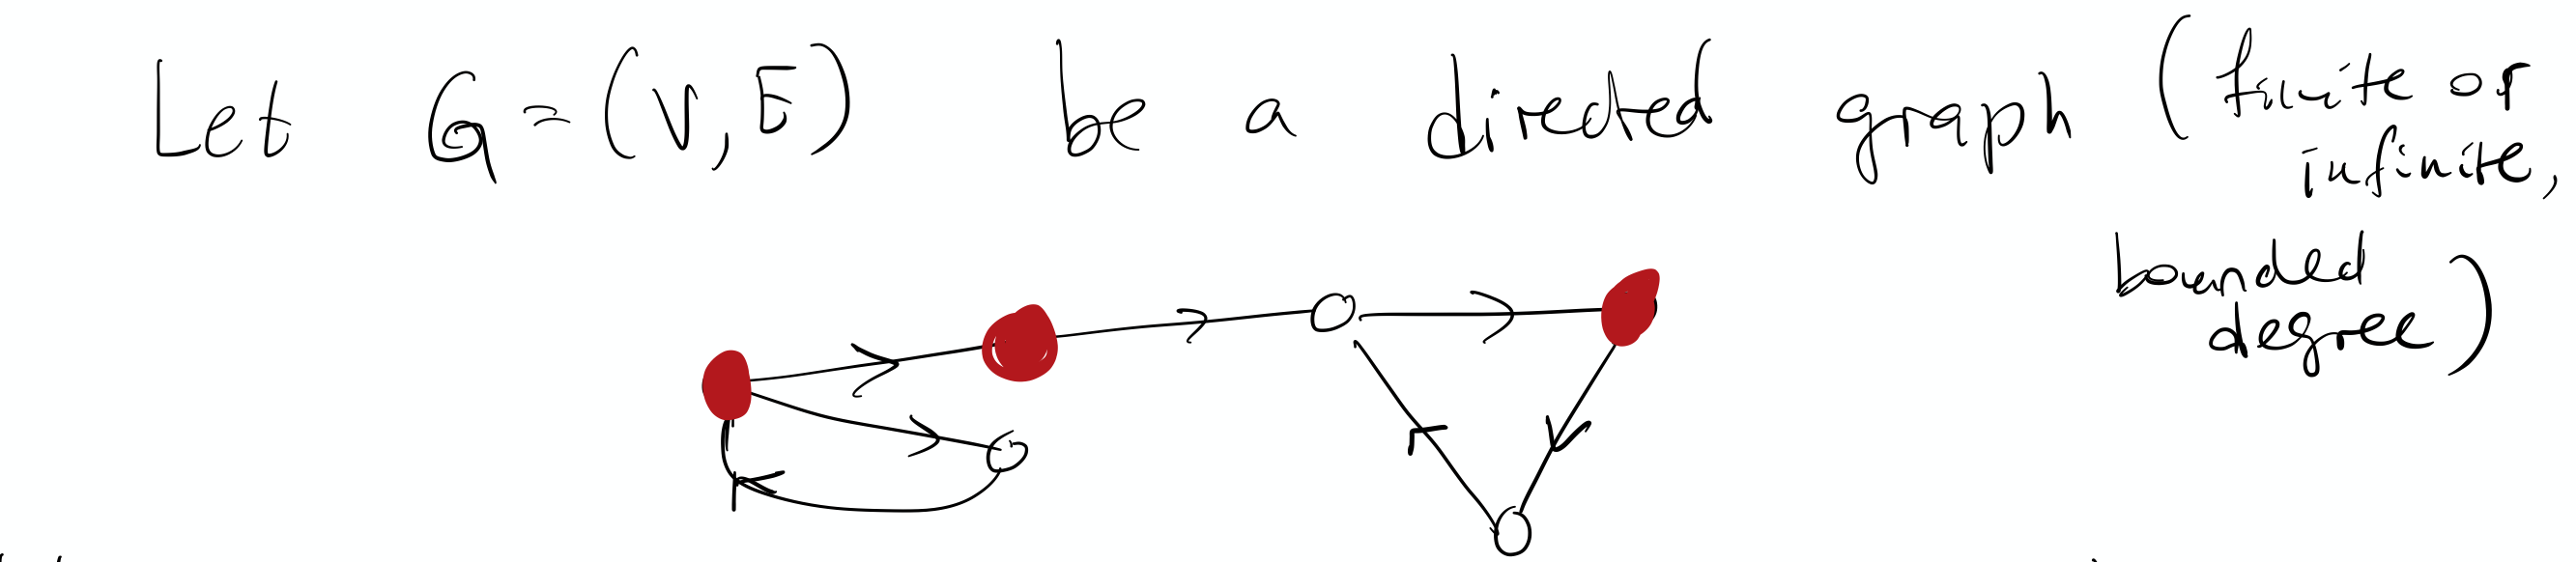 Let G = (V, E) be a directed graph (finite or
infinite,
bounded
degree)